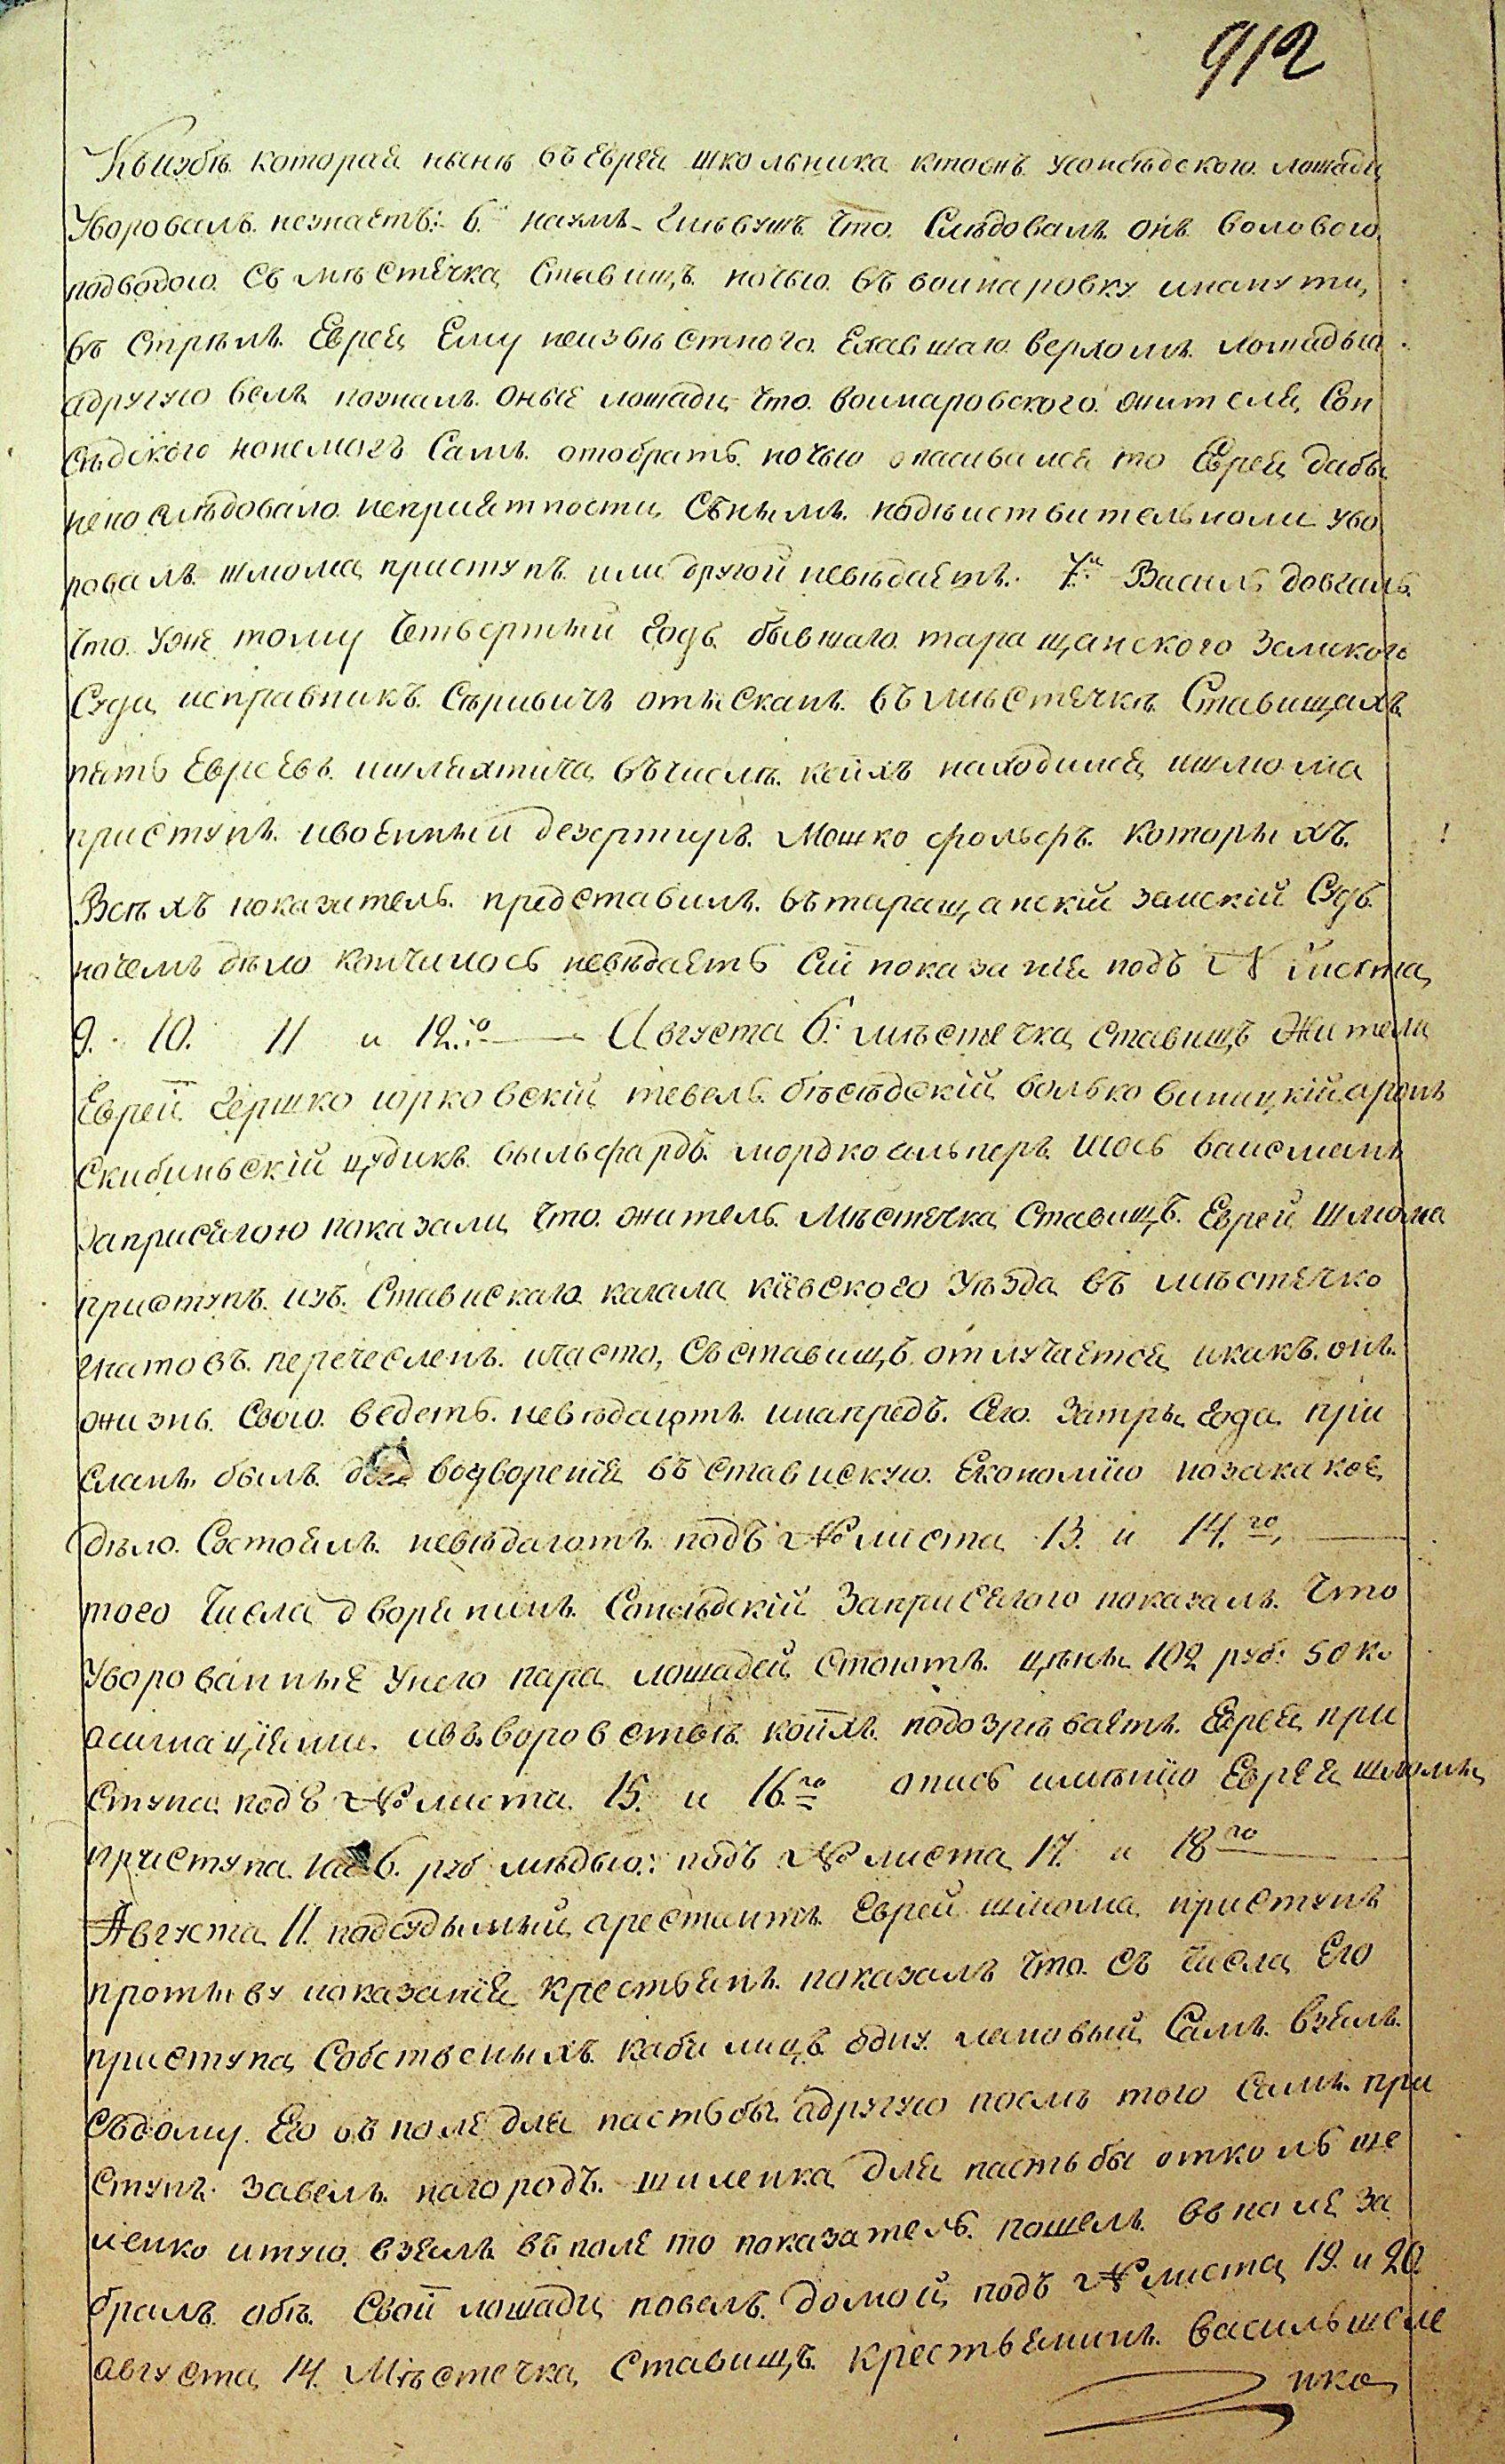 912
Къизбѣ которая нынѣ въ Еврея школьника ктоонъ усопсѣдского лошади
Уворовалъ незнаетъ: 6. наумъ что Слѣдовалъ онъ воловою
подводою Съ мѣстечка Ставищъ ночью въ воинаровку инапути
въ стрѣлъ Еврея Ему неизвѣстного Ехавшаго верхомъ лошадью
адругую велъ позналъ оные лошади что воинаровского жителя Соп
сѣдского нонемогъ Самъ отобрать ночью опасивался то Еврея дабы
непослѣдовало непрiятности Снымъ надѣиствительноли уво
ровалъ шлюома приступъ или другой невѣдаетъ. 7й Василь довгаль
что уже тому четвертый годъ бывшаго таращанского Земского
Суда исправникъ отыскалъ въ мѣстечкѣ Ставищахъ
пять Евреевъ ишляхтича вчислѣ коихъ находился шлюома
приступъ ивоенный дезертиръ Мошко фольфъ которыхъ
Всѣхъ показатель представилъ вътаращанскiй земскiй Судъ
ночемъ дѣло кончилось невѣдаетъ Сiи показанiя подъ № листа
9. 10. 11 и 12.го — Августа 6. мѣстечка ставищъ жители
Евреи Гершко юрковскiй тевель бѣсѣдскiй волько виницкiй аронъ
Скибиньскiй цудикъ вильфардъ мордко альперъ иось ваисманъ
заприсягою показали что житель Мѣстечка Ставищъ Еврей Шлюома
приступъ изъ Ставискаго кагала кiевского уѣзда въ мѣстечко
гнатовъ перечесленъ ичасто Съставищъ отлучается икакъ онъ
жизнь Свою ведетъ невѣдаютъ инапредъ Сего затры года при
сланъ былъ для водворенiя въ ставискую Економiю ноза какое
дѣло Состоялъ невѣдаютъ подъ № листа 13. и 14.го —
того Числа дворянинъ Сопсѣдскiй Заприсягою показалъ что
Уворованные унего пара лошадей стоютъ цѣны 102 руб: 50 ко
асигнацiями ивъворовствѣ коихъ подозрѣваетъ Еврея при
ступа подъ № листа 15. и 16.го опись имѣнiю Еврея шлюомы
приступа на 6. руб мѣдью: подъ № листа 17. и 18го —
Августа 11. подсудымый арестантъ Еврей шлюома приступъ
противу показанiя крестьянъ показалъ что съ числа Его
приступа Собственыхъ кабилицъ одну Самъ взялъ
Съдому Его въ поле для пастьбы адругую послѣ того самъ при
ступъ завелъ нагородъ шиленка для пастьбы отколь ше
ленко итую взялъ въ поле то показатель пошелъ въ поле за
бралъ обѣ Свои лошади повелъ домой подъ № листа 19. и 20
августа 14. Мѣстечка Ставищъ крестьянинъ василь шеле
нко